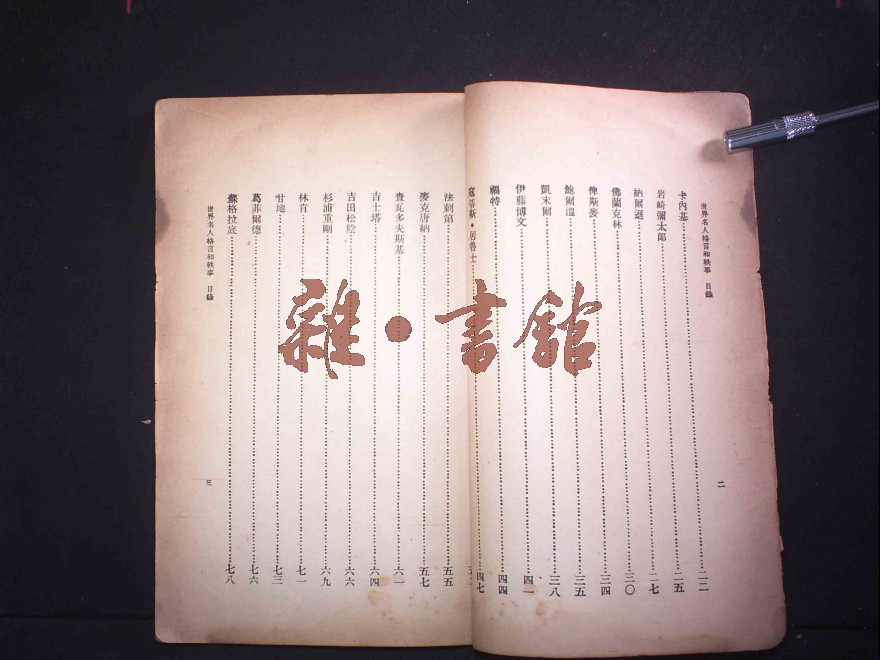 世界名人格言和軼事 目錄
二
卡內基……二二
岩崎彌太郎……二五
納爾遜……二七
佛蘭克林……三〇
俾斯麥……三四
鮑爾溫……三五
凱末爾……三八
伊藤博文……四一
福特……四四
寇蒂斯·居魯士……四七
法剌第……五五
麥克唐納……五七
查瓦多夫斯基……六一
吉士塔……六四
吉田松陰……六六
杉浦重剛……六九
林肯……七一
甘地……七三
葛菲爾德……七六
蘇格拉底……七八
世界名人格言和軼事 目錄
三
雜·書館